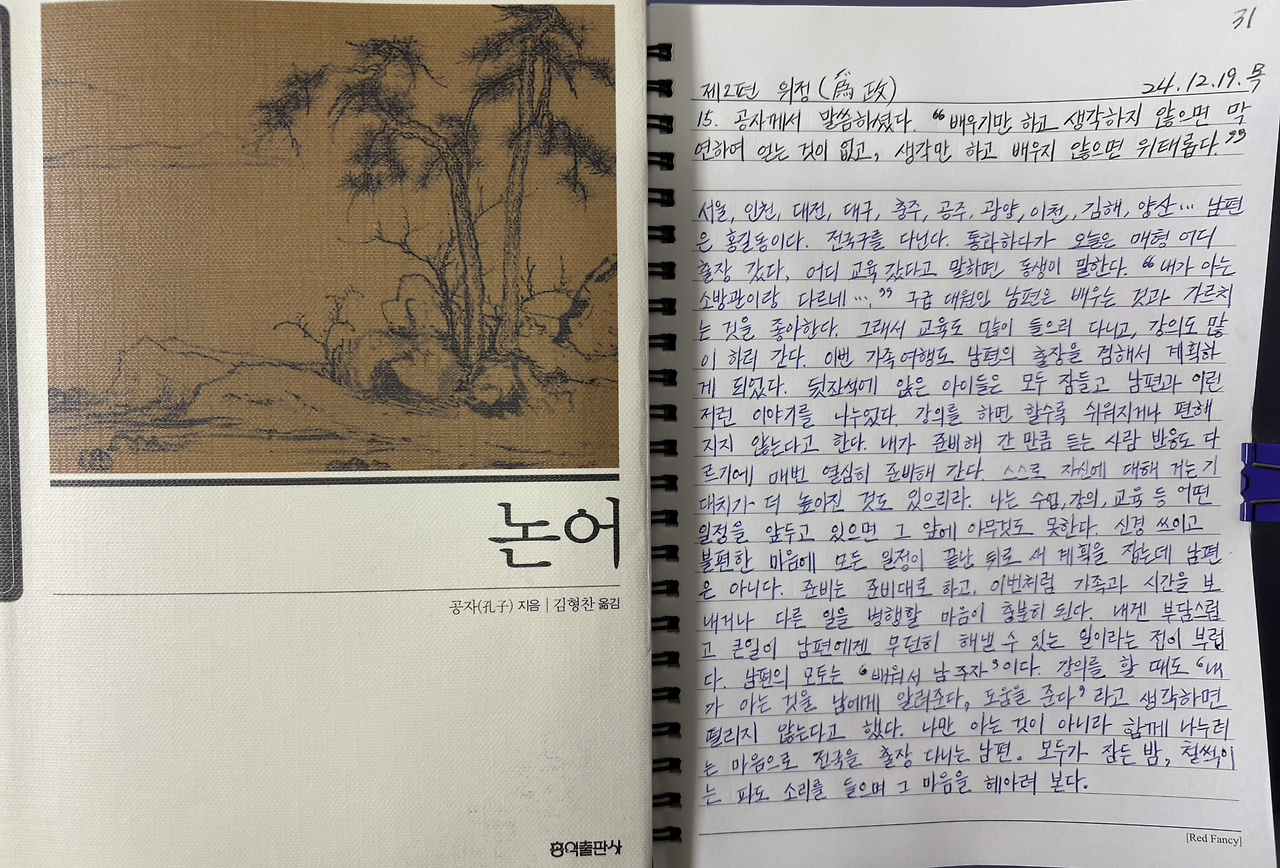 논어
공자(孔子) 지음 | 김형찬 옮김
홍익출판사
31
제2편 위정(爲政) 24.12.19.목
15. 공자께서 말씀하셨다. "배우기만 하고 생각하지 않으면 막
연하여 얻는 것이 없고, 생각만 하고 배우지 않으면 위태롭다."
서울, 인천, 대전, 대구, 충주, 공주, 광양, 이천, 김해, 양산… 남편
은 홍길동이다. 전국구를 다닌다. 통화하다가 오늘은 매형 어디
출장 갔다, 어디 교육 갔다고 말하면 동생이 말한다. "내가 아는
소방관이랑 다르네…." 구급 대원인 남편은 배우는 것과 가르치
는 것을 좋아한다. 그래서 교육도 많이 들으러 다니고, 강의도 많
이 하러 간다. 이번 가족여행도 남편의 출장을 겸해서 계획하
게 되었다. 뒷좌석에 앉은 아이들은 모두 잠들고 남편과 이런
저런 이야기를 나누었다. 강의를 하면 할수록 쉬워지거나 편해
지지 않는다고 한다. 내가 준비해 간 만큼 듣는 사람 반응도 다
르기에 매번 열심히 준비해 간다. 스스로 자신에 대해 거는 기
대치가 더 높아진 것도 있으리라. 나는 수업, 강의, 교육 등 어떤
일정을 앞두고 있으면 그 앞에 아무것도 못한다. 신경 쓰이고
불편한 마음에 모든 일정이 끝난 뒤로 새 계획을 잡는데 남편
은 아니다. 준비는 준비대로 하고, 이번처럼 가족과 시간을 보
내거나 다른 일을 병행할 마음이 충분히 된다. 내겐 부담스럽
고 큰일이 남편에겐 무던히 해낼 수 있는 일이라는 점이 부럽
다. 남편의 모토는 '배워서 남 주자'이다. 강의를 할 때도 '내
가 아는 것을 남에게 알려준다, 도움을 준다'라고 생각하면
떨리지 않는다고 했다. 나만 아는 것이 아니라 함께 나누려
는 마음으로 전국을 출장 다니는 남편. 모두가 잠든 밤, 철썩이
는 파도 소리를 들으며 그 마음을 헤아려 본다.
[Red Fancy]